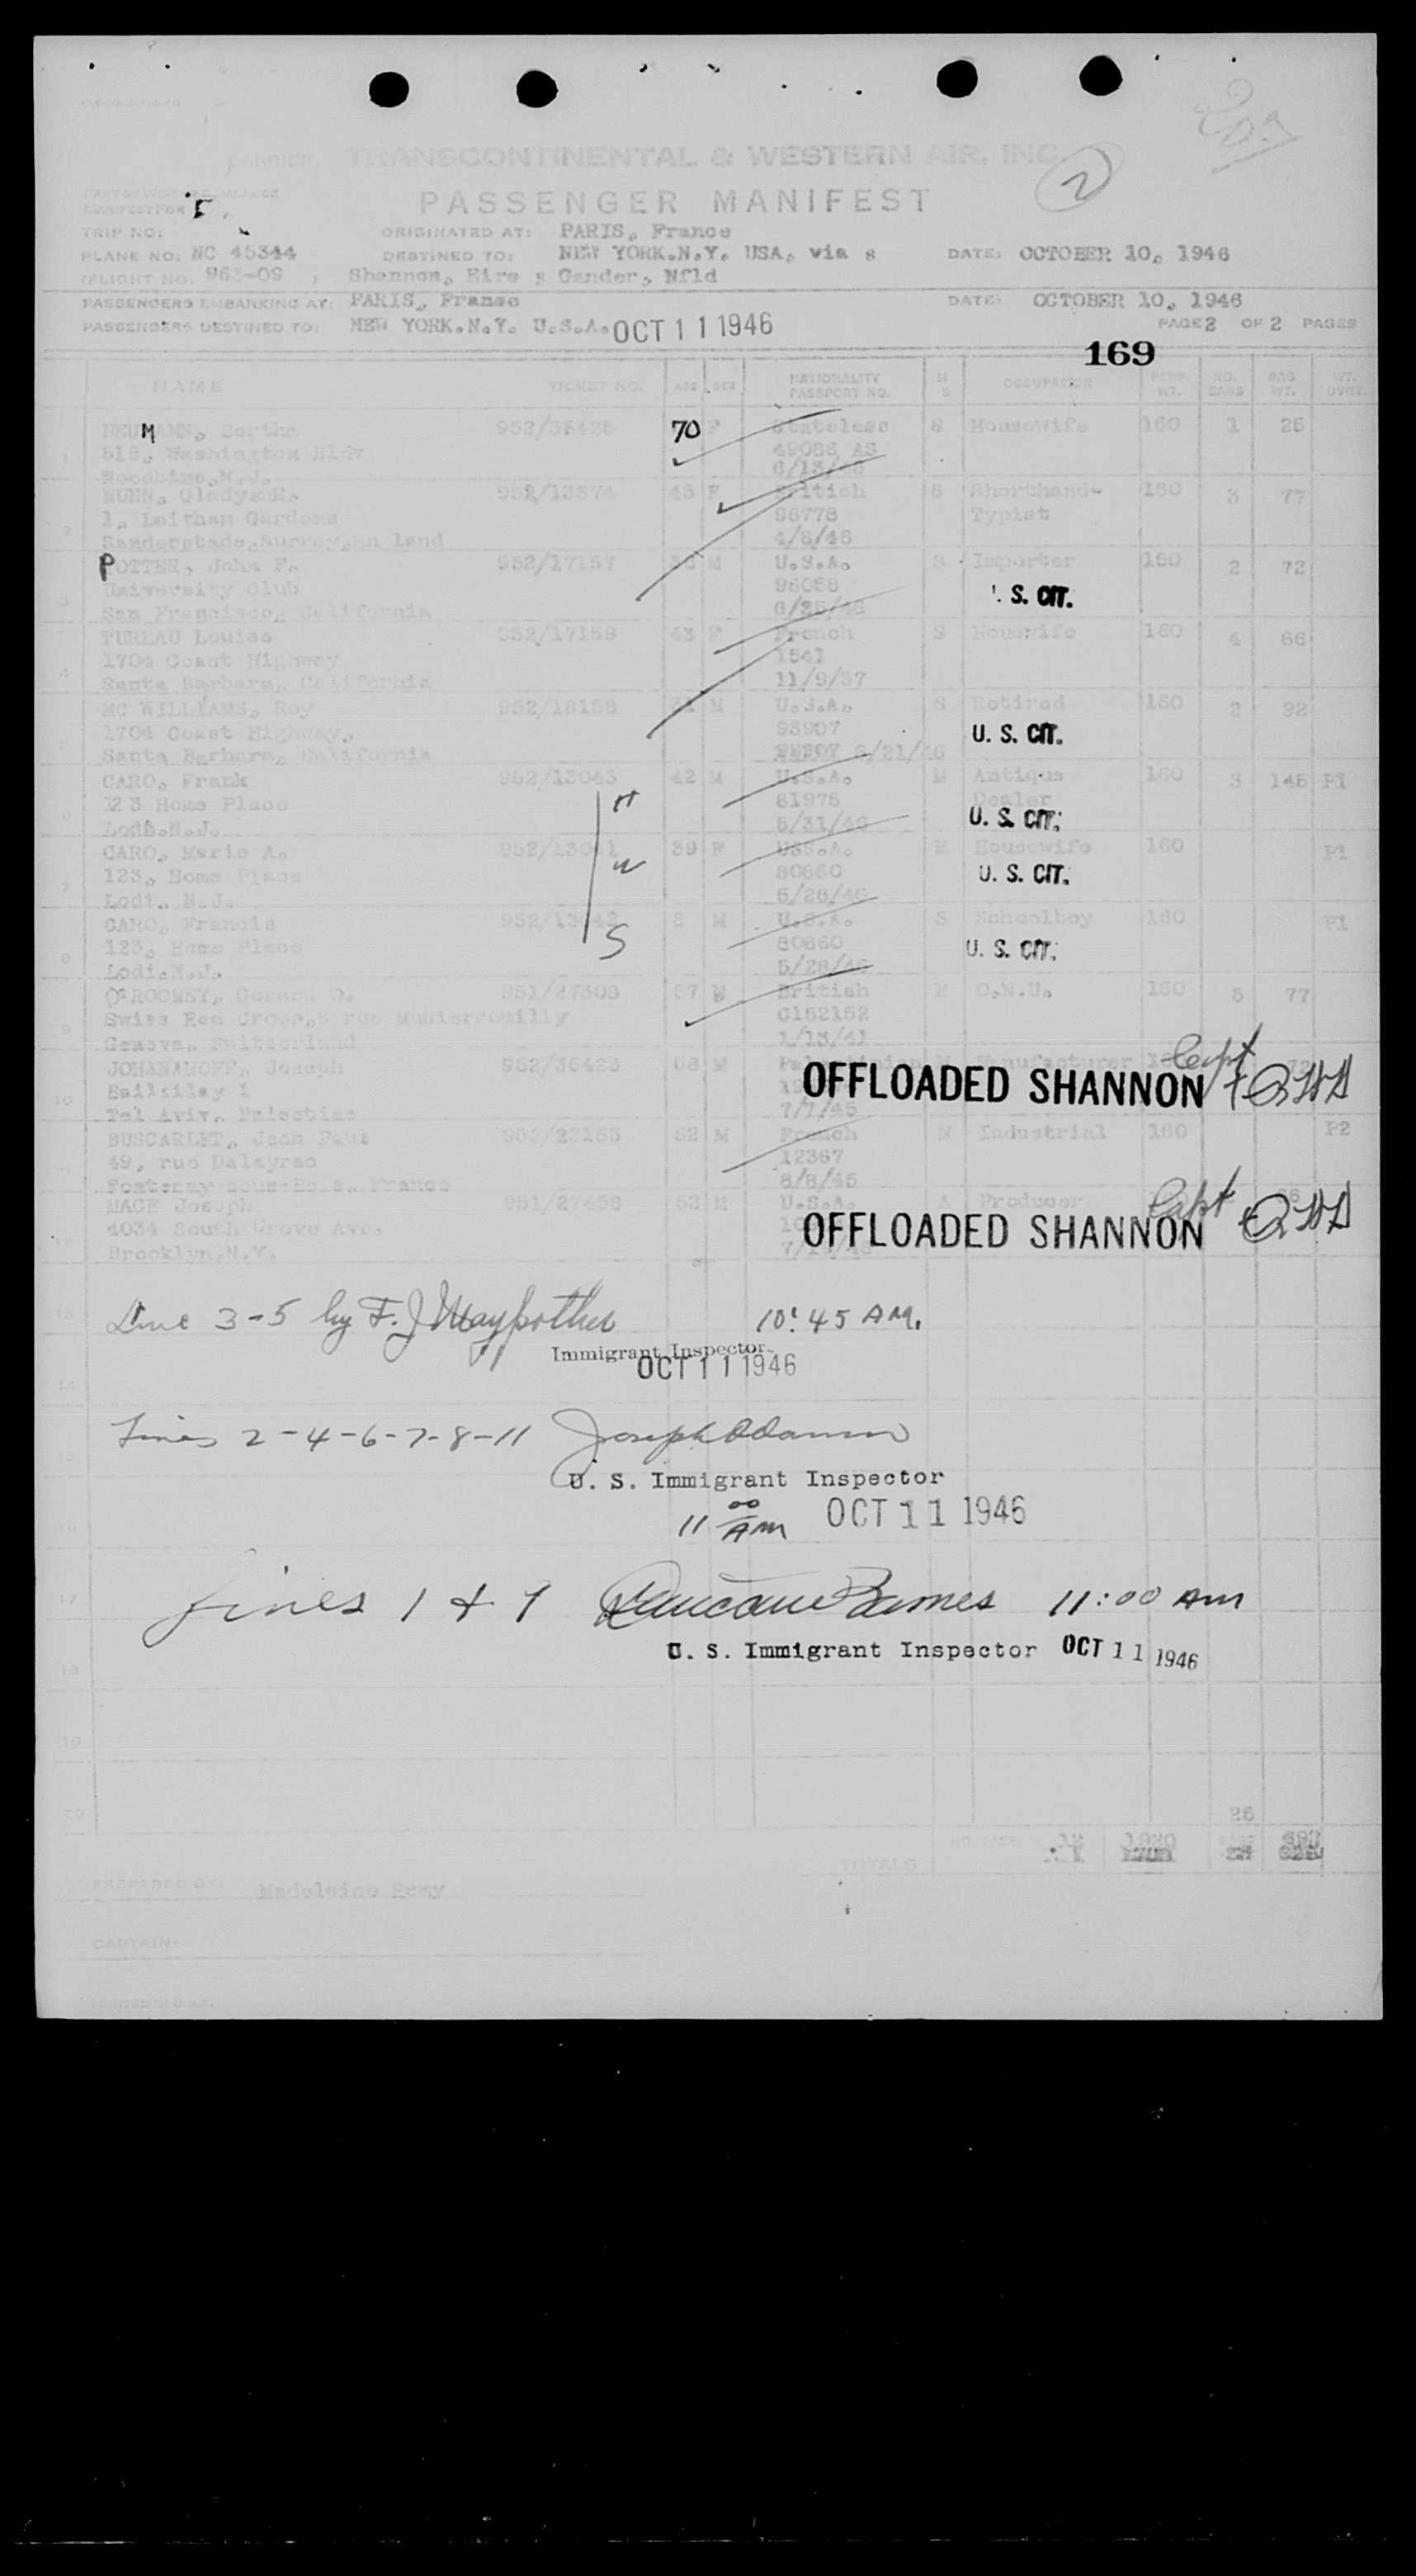 TRANSCONTINENTAL & WESTERN AIR, INC.
PASSENGER MANIFEST
2
TRIP NO: ORIGINATED AT: PARIS, France
PLANE NO: NC 45344 DESTINED TO: NEW YORK.N.Y. USA, via s DATE: OCTOBER 10, 1946
FLIGHT NO. 963-09 Shannon, Eire s Gander, Nfld
PASSENGERS EMBARKING AT: PARIS, France DATE: OCTOBER 10, 1946
PASSENGERS DESTINED TO: NEW YORK.N.Y. U.S.A. OCT 11 1946 PAGE 2 OF 2 PAGES
169
NAME TICKET NO. AGE SEX NATIONALITY PASSPORT NO. M S OCCUPATION PERS. WT. NO. BAGS BAG WT. WT. OVRT.
1 NEUMANN, Bertha 952/35425 70 F Stateless S Housewife 160 1 25
518, Washington Bldv 49086 AS
Woodbine,N.J. 6/13/46
2 NUHN, Gladys 952/13374 45 F British S Shorthand- 160 3 77
1, Leitham Gardens 96778 Typist
Sanderstade,Surrey 4/8/46
3 POTTER, John F. 952/17157 M U.S.A. S Importer 160 2 72
University Club 96058 S. CIT.
San Francisco, California 6/25/46
4 TUREAU Louise 952/17159 43 F French S Houswife 160 4 66
1704 Coast Highway 1541
Santa Barbara, California 11/9/37
5 MC WILLIAMS, Roy 952/18158 M U.S.A. S Retired 160 2 92
1704 Coast Highway, 93907 U. S. CIT.
Santa Barbara, California 6/21/46
6 CARO, Frank 952/13043 42 M U.S.A. M Antique 160 3 145 P1
123 Home Place H 61975 Dealer
Lodi.N.J. 5/31/46 U. S. CIT.
7 CARO, Marie A. 952/13041 39 F USS.A. M Housewife 160 P1
123, Home Place W 80660 U. S. CIT.
Lodi., N.J. 5/28/46
8 CARO, Francis 952/13042 8 M U.S.A. S Schoolboy 160 P1
123, Home Place S 80660 U. S. CIT.
Lodi.N.J. 5/28/46
9 O'ROONEY, Gerard O. 951/27308 57 M British M O.N.U. 160 5 77
Swiss Red Cross,8 rue C152152
Geneva, Switzerland 1/13/41
10 JOHANANOFF, Joseph 952/35423 58 M Palestinian Manufacturer
OFFLOADED SHANNON Capt
Tel Aviv, Palestine 7/7/45
11 BUSCARLET, Jean Paul 952/22155 52 M French M Industrial 160 P2
49, rue Dalayrac 12367
Fontenay-sous-Bois, France 8/8/45
12 MAGE Joseph 951/27458 52 M U.S.A. Producer
4034 South Grove Ave. OFFLOADED SHANNON Capt
Brooklyn,N.Y.
13 Line 3-5 by F. J. Maypother 10:45 AM.
Immigrant Inspector
OCT 11 1946
14
15 Lines 2-4-6-7-8-11
U. S. Immigrant Inspector
16 11 00 AM OCT 11 1946
17 Lines 1 & 9 Barnes 11:00 AM
U. S. Immigrant Inspector OCT 11 1946
18
19
20 26
NO. PASS. 12 1920 693
TOTALS
PREPARED BY: Madeleine Remy
CAPTAIN: